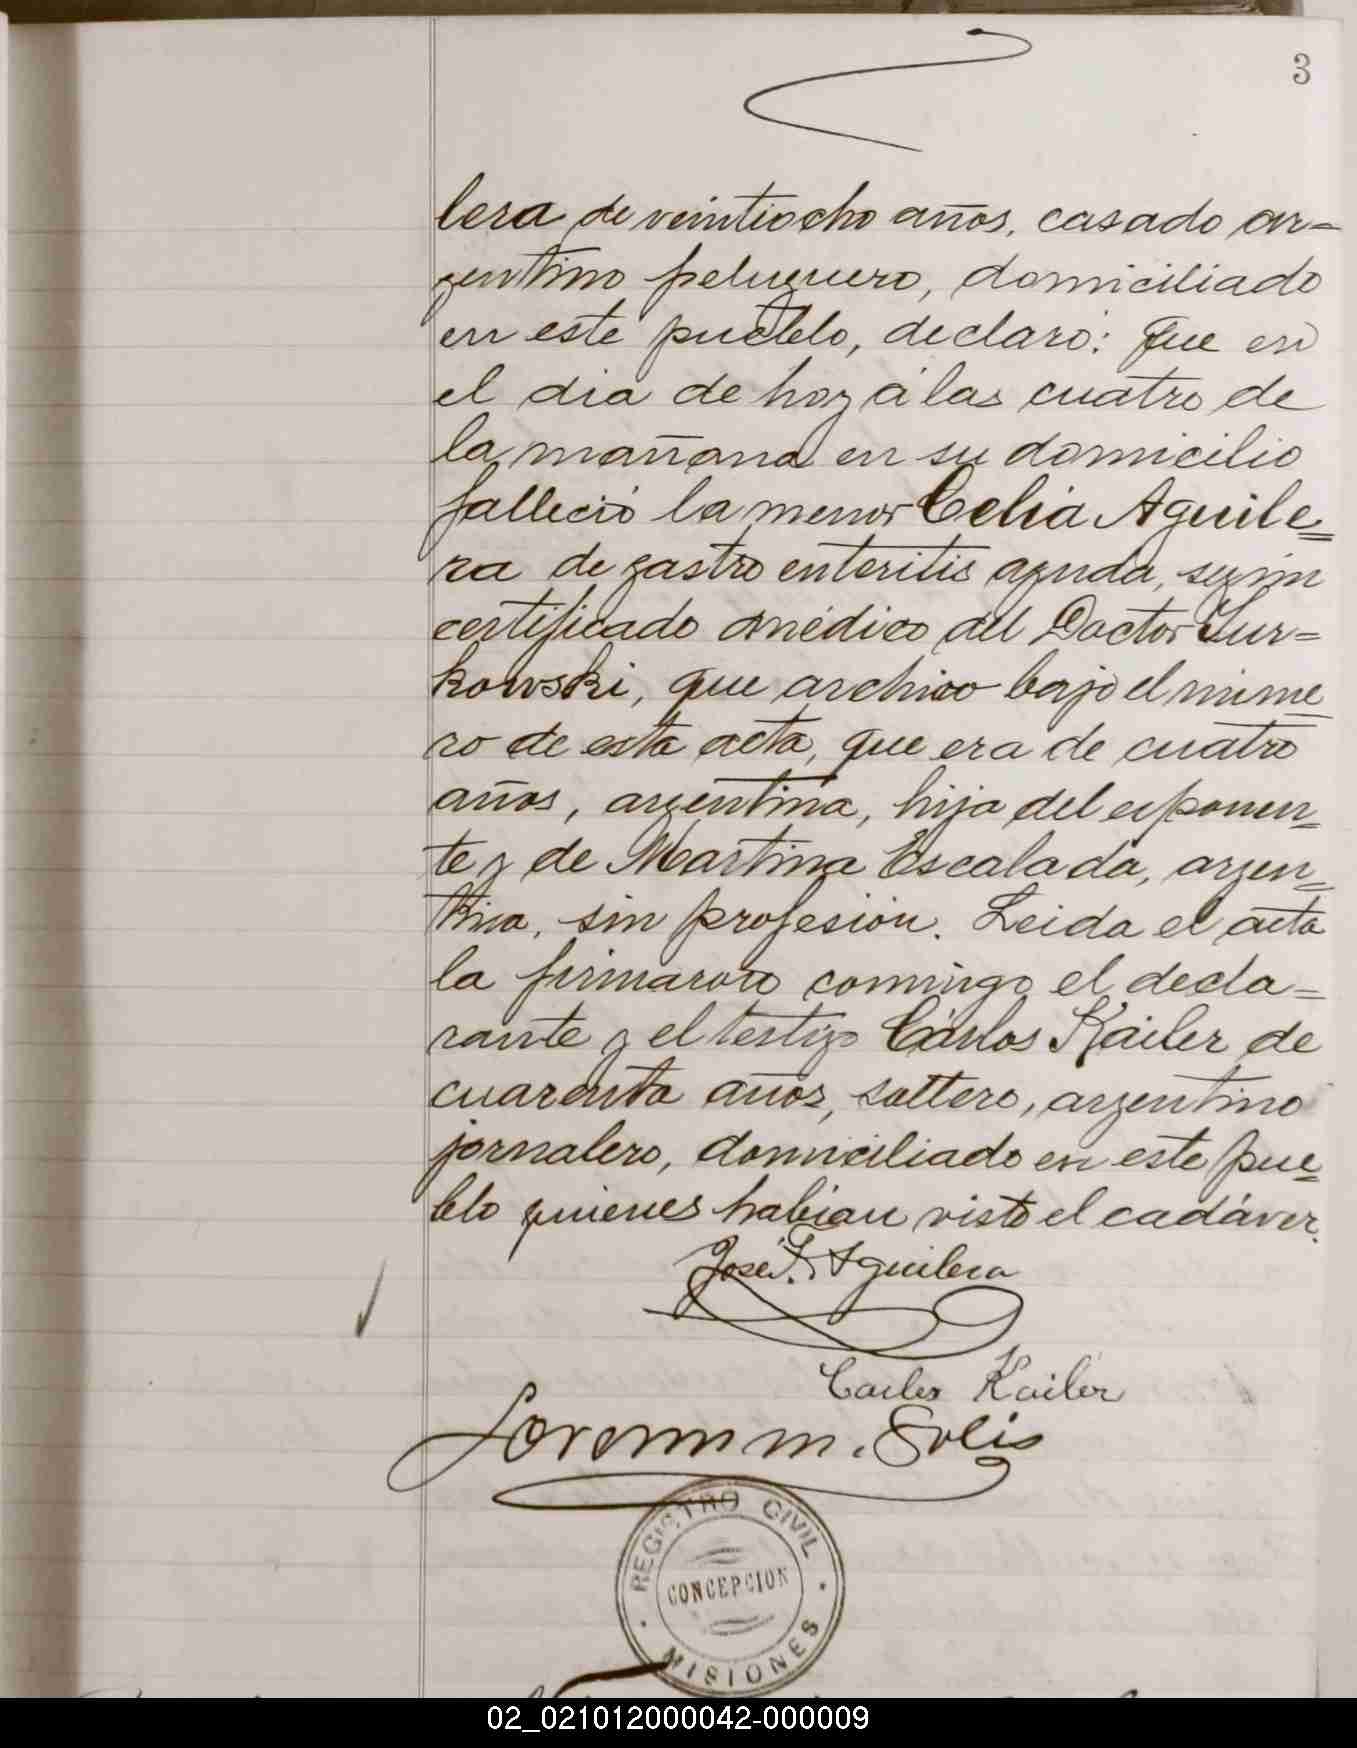 3
lera de veintiocho años, casado ar=
gentino peluquero, domiciliado
en este pueblo, declaró: Que en
el dia de hoy á las cuatro de
la mañana en su domicilio
falleció la menor Celia Aguile=
ra de gastro enteritis aguda, segun
certificado médico del Doctor Jur=
kowski, que archivo bajo el nume
ro de esta acta, que era de cuatro
años, argentina, hija del exponen=
te y de Martina Escalada, argen=
tina, sin profesión. Leida el acta
la firmaron conmigo el decla=
rante y el testigo Cárlos Kailer de
cuarenta años, soltero, argentino
jornalero, domiciliado en este pue=
blo quienes habian visto el cadáver.
José F. Aguilera
Carlos Kailer
Lorenzo M. Solis
REGISTRO CIVIL
CONCEPCION
MISIONES
02_021012000042-000009